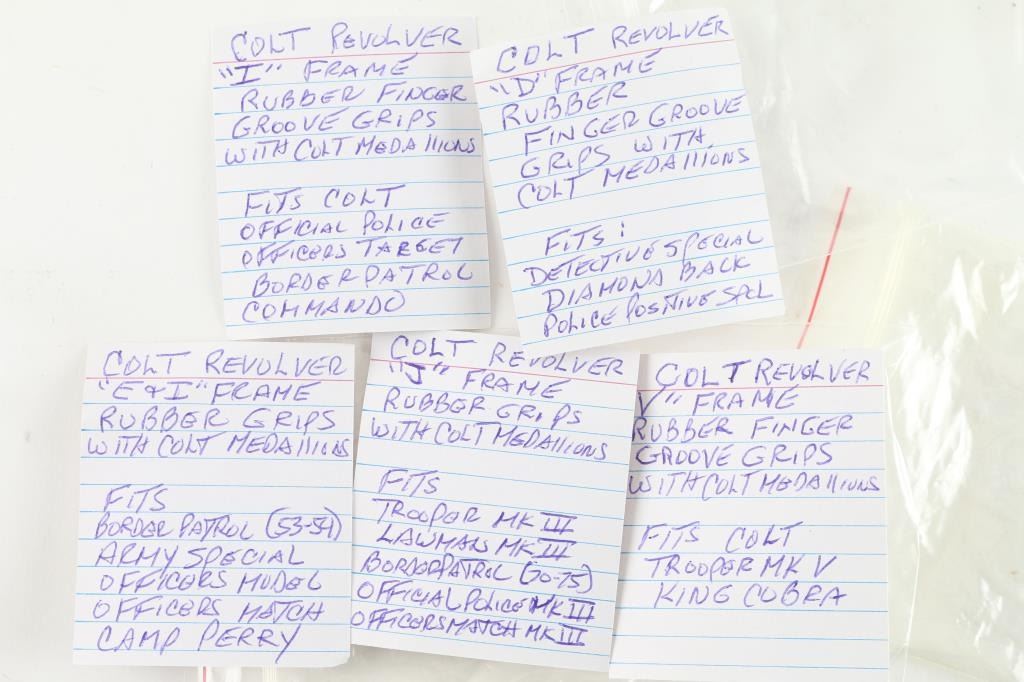 COLT REVOLVER
"I" FRAME
RUBBER FINGER
GROOVE GRIPS
WITH COLT MEDALLIONS
FITS COLT
OFFICIAL POLICE
OFFICERS TARGET
BORDER PATROL
COMMANDO
COLT REVOLVER
"D" FRAME
RUBBER
FINGER GROOVE
GRIPS WITH
COLT MEDALLIONS
FITS:
DETECTIVE SPECIAL
DIAMOND BACK
POLICE POSITIVE SPCL
COLT REVOLVER
"E&I" FRAME
RUBBER GRIPS
WITH COLT MEDALLIONS
FITS
BORDER PATROL (53-54)
ARMY SPECIAL
OFFICERS MODEL
OFFICERS MATCH
CAMP PERRY
COLT REVOLVER
"J" FRAME
RUBBER GRIPS
WITH COLT MEDALLIONS
FITS
TROOPER MK III
LAWMAN MK III
BORDER PATROL (70-75)
OFFICIAL POLICE MK III
OFFICERS MATCH MK III
COLT REVOLVER
V" FRAME
RUBBER FINGER
GROOVE GRIPS
WITH COLT MEDALLIONS
FITS COLT
TROOPER MK V
KING COBRA